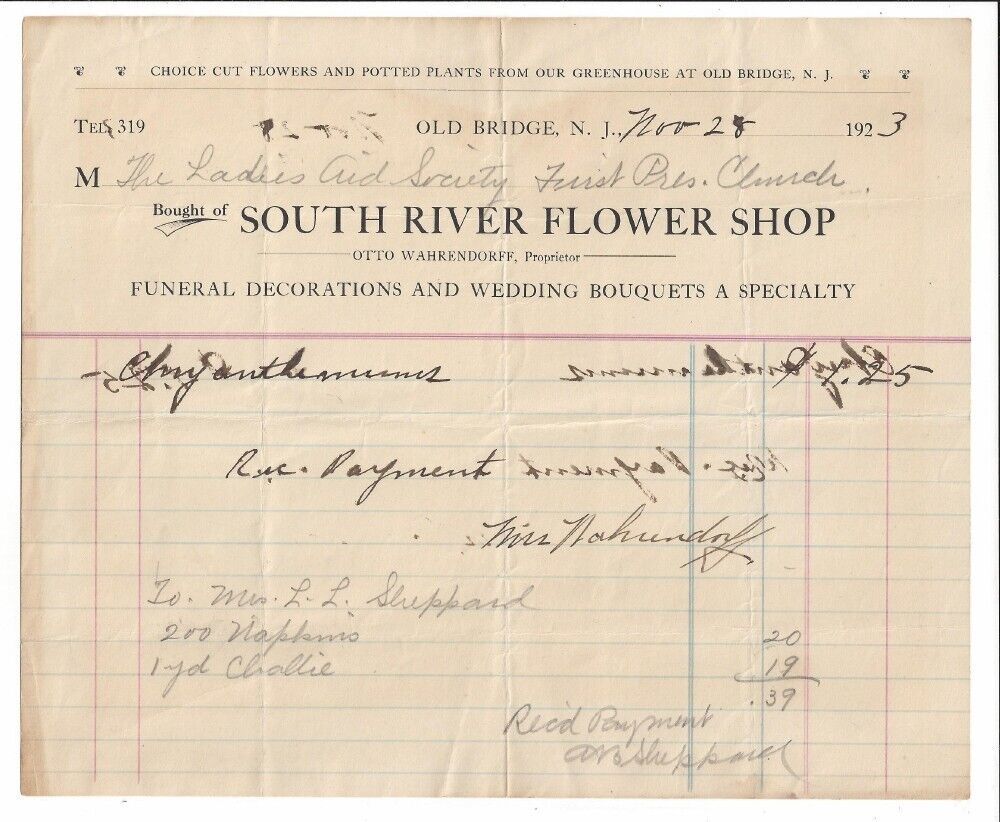 CHOICE CUT FLOWERS AND POTTED PLANTS FROM OUR GREENHOUSE AT OLD BRIDGE, N. J.
TEL. 319 OLD BRIDGE, N. J., Nov 28 1923
M The Ladies Aid Society First Pres. Church.
Bought of SOUTH RIVER FLOWER SHOP
OTTO WAHRENDORFF, Proprietor
FUNERAL DECORATIONS AND WEDDING BOUQUETS A SPECIALTY
Chrysanthemums .25
Rec. Payment
Wahrendorff
To. Mrs. L. L. Sheppard
200 Napkins 20
1 yd Challie 19
.39
Rec'd Payment
Sheppard